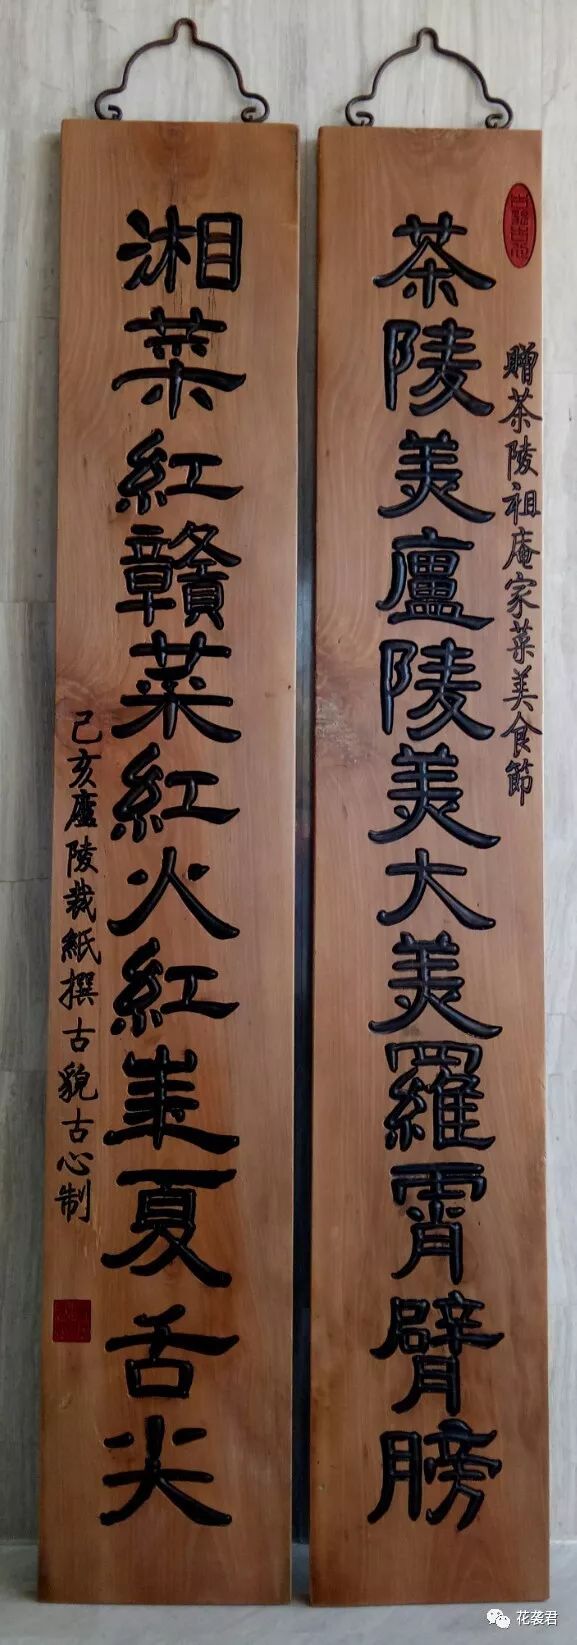 贈茶陵祖庵家菜美食節
茶陵美廬陵美大美羅霄臂膀
湘菜紅贛菜紅火紅華夏舌尖
己亥廬陵裁紙撰古貌古心制
花袭君